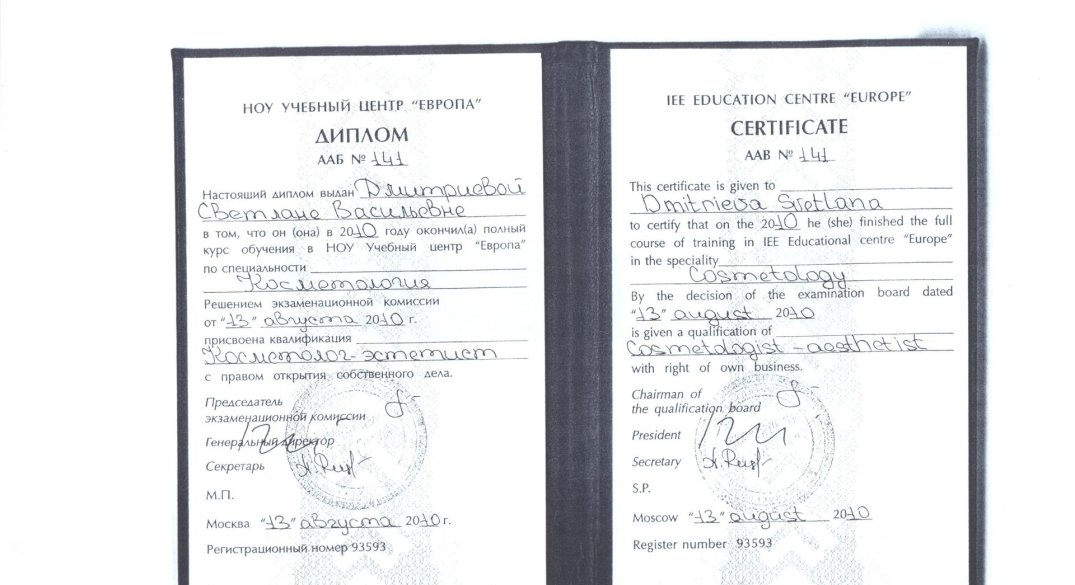 НОУ УЧЕБНЫЙ ЦЕНТР "ЕВРОПА"
ДИПЛОМ
ААБ № 141
Настоящий диплом выдан Дмитриевой
Светлане Васильевне
в том, что он (она) в 2010 году окончил(а) полный
курс обучения в НОУ Учебный центр "Европа"
по специальности
Косметология
Решением экзаменационной комиссии
от "13" августа 2010 г.
присвоена квалификация
Косметолог-эстетист
с правом открытия собственного дела.
Председатель
экзаменационной комиссии
Генеральный директор
Секретарь
М.П.
Москва "13" августа 2010 г.
Регистрационный номер 93593
IEE EDUCATION CENTRE "EUROPE"
CERTIFICATE
AAB № 141
This certificate is given to
Dmitrieva Svetlana
to certify that on the 2010 he (she) finished the full
course of training in IEE Educational centre "Europe"
in the speciality
Cosmetology
By the decision of the examination board dated
"13" august 2010
is given a qualification of
Cosmetologist-aesthetist
with right of own business.
Chairman of
the qualification board
President
Secretary
S.P.
Moscow "13" august 2010
Register number 93593